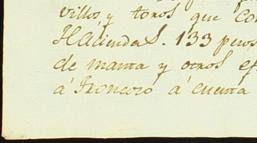 villos, y toros que con
Haciendas. 133 pesos
de manta y otros ef
á Troncoso á cuenta